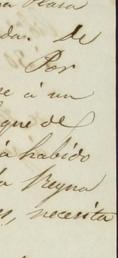 na Plaza
das. de
Por
e á un
que de
á habido
la Reyna
necesita